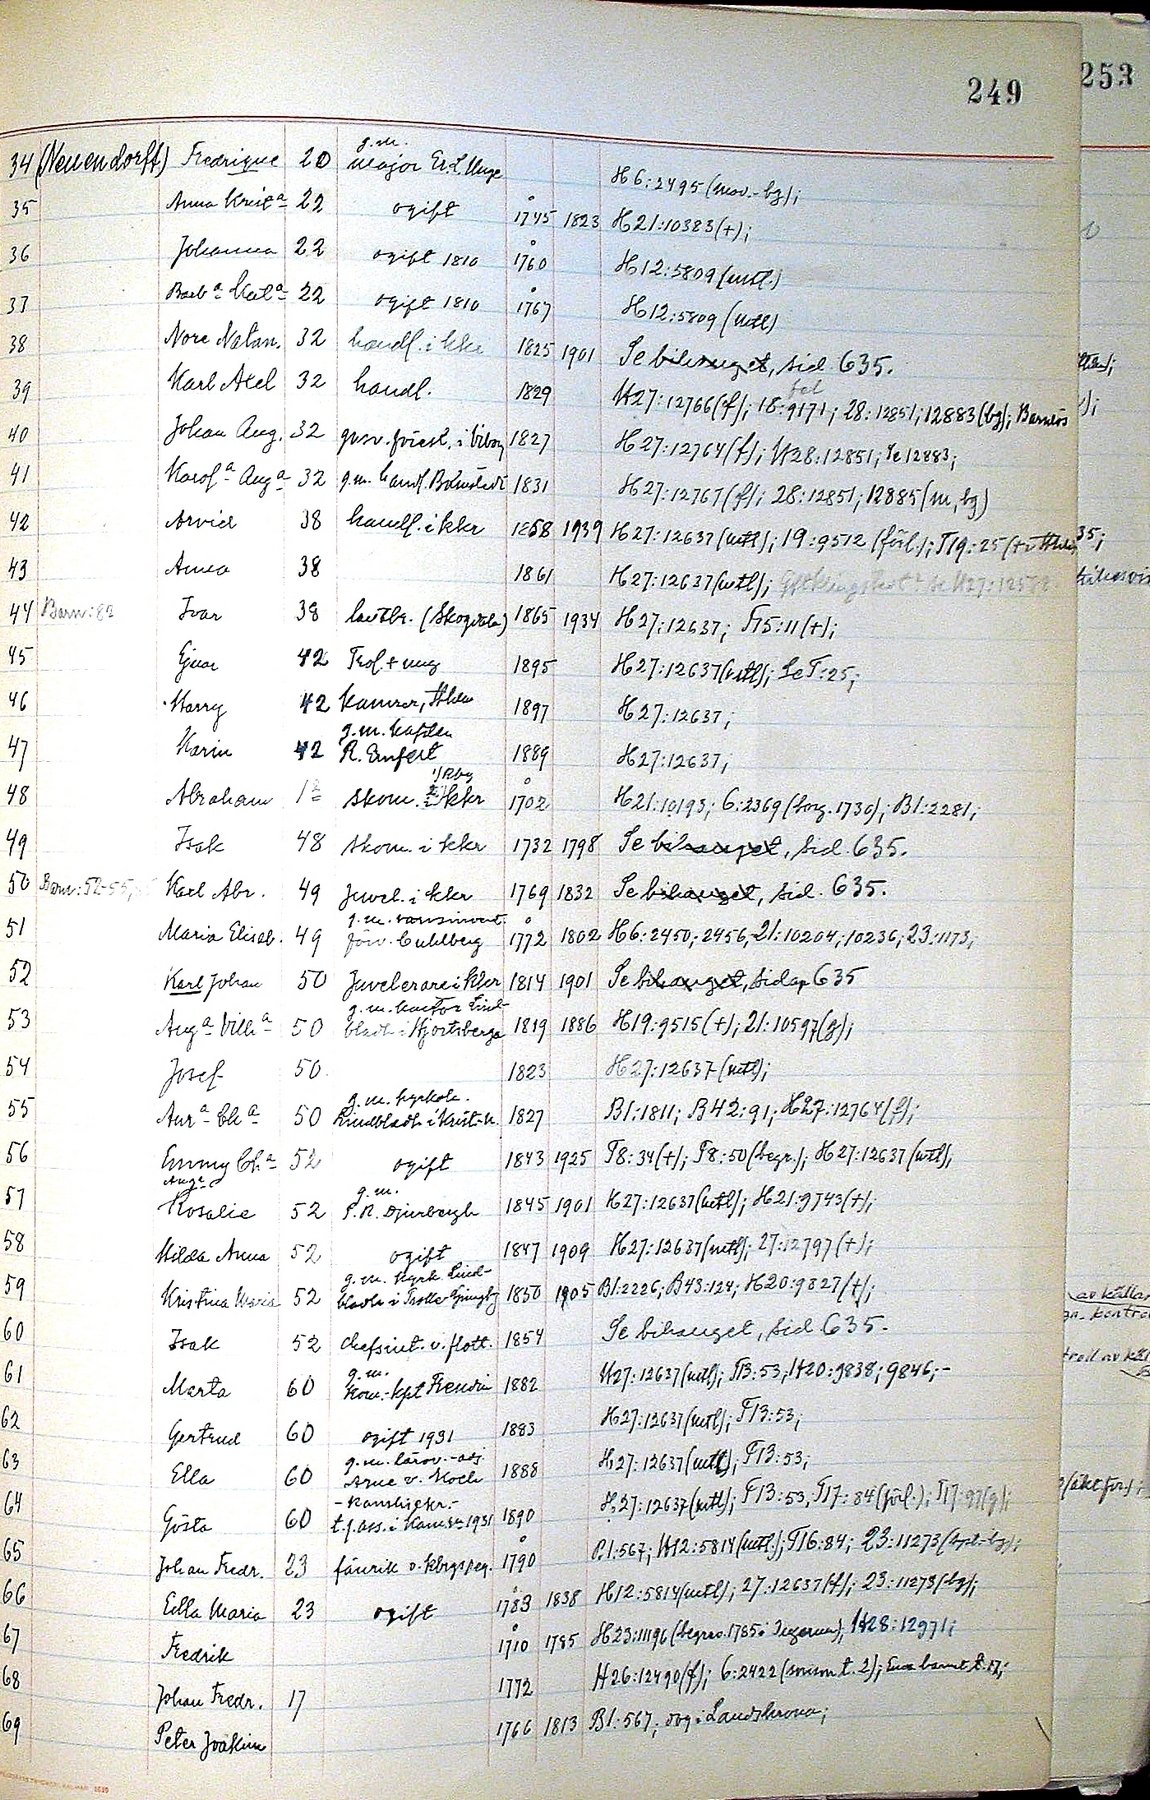 249
253
34 (Neuendorff) Fredrique 20 g.m. major Er. L. Unge H6:2495 (mov.-bg);
35 Anna Krist:a 22 ogift 1745 1823 H21:10383(+);
36 Johanna 22 ogift 1810 1760 H12:5809 (mtl.)
37 Barb:a Kat:a 22 ogift 1810 1767 H12:5809 (mtl)
38 Nore Natan. 32 handl. i kkr 1825 1901 Se bihanget, sid. 635.
39 Karl Axel 32 handl. 1829 H27:12766(f); 18:9171; 28:12851; 12883(bg); Barnlös
40 Johan Aug. 32 i Viborg 1827 H27:12764(f); H28:12851; Se 12883;
41 Karol:a Aug:a 32 g.m. handl. 1831 H27:12767(f); 28:12851; 12885(m, bg)
42 Arvid 38 handl. i kkr 1858 1939 H27:12637(mtl); 19:9512 (förl.); T19:25
43 Anna 38 1861 H27:12637(mtl);
44 Barn: 82 Ivar 38 lantbr. (Skogvala) 1865 1934 H27:12637; T15:11(+);
45 Ejnar 42 1895 H27:12637(mtl); Se T:25;
46 Harry 42 kamrer, Sthlm 1897 H27:12637;
47 Karin 42 g.m. kapten R. Enfert 1889 H27:12637;
48 Abraham 1 skom. i kkr 1702 H21:10193; 6:2369 (borg. 1730); B1:2281;
49 Isak 48 skom. i kkr 1732 1798 Se bihanget, sid. 635.
50 Barn: 52-55, Karl Abr. 49 Juvel. i kkr 1769 1832 Se bihanget, sid. 635.
51 Maria Elisab. 49 g.m. förv. Cuhlberg 1772 1802 H6:2450; 2456, 21:10204, 10236; 23:1173;
52 Karl Johan 50 Juvelerare i kkr 1814 1901 Se bihanget, sidan 635
53 Aug:a Vilh:a 50 g.m. kantor Lindbladh i Hjortsberga 1819 1886 H19:9515(+); 21:10597(g);
54 Josef 50 1823 H27:12637 (mtl);
55 Aur:a Ch:a 50 g.m. kyrkoh. Lindbladh i Krist-n. 1827 B1:1811; B42:91; H27:12764(f);
56 Emmy Ch:a Aug:a 52 ogift 1843 1925 T8:34(+); T8:50(begr.); H27:12637(mtl);
57 Rosalie 52 g.m. P.R. Djurbergh 1845 1901 H27:12637(mtl); H21:9743(+);
58 Hilda Anna 52 ogift 1847 1909 H27:12637(mtl); 27:12797(+);
59 Kristina Maria 52 g.m. kyrk. Lindbladh i Trolle Ljungby 1850 1905 B1:2226; B43:124; H20:9827(+);
60 Isak 52 chefsint. v. flott. 1854 Se bihanget, sid 635.
61 Marta 60 g.m. kom.-kpt Frendin 1882 H27:12637(mtl); T13:53; H20:9838; 9846;-
62 Gertrud 60 ogift 1931 1883 H27:12637(mtl); T13:53;
63 Ella 60 g.m. lärov.-adj. Arne v. Koch 1888 H27:12637(mtl); T13:53;
64 Gösta 60 t.f. ass. i Kam. 1931 1890 H27:12637(mtl); T13:53, T17:84(förl.); T17:97(g);
65 Johan Fredr. 23 fänrik v. 1790 B1:567; H12:5814(mtl.); T16:84; 23:11273
66 Edla Maria 23 ogift 1783 1838 H12:5814(mtl); 27:12637(f); 23:11273(bg);
67 Fredrik 1710 1785 H23:1196 (begrav. 1785 i ); H28:12971;
68 Johan Fredr. 17 1772 H26:12490(f); 6:2422
69 Peter Joakim 1766 1813 B1:567; dog i Landskrona;